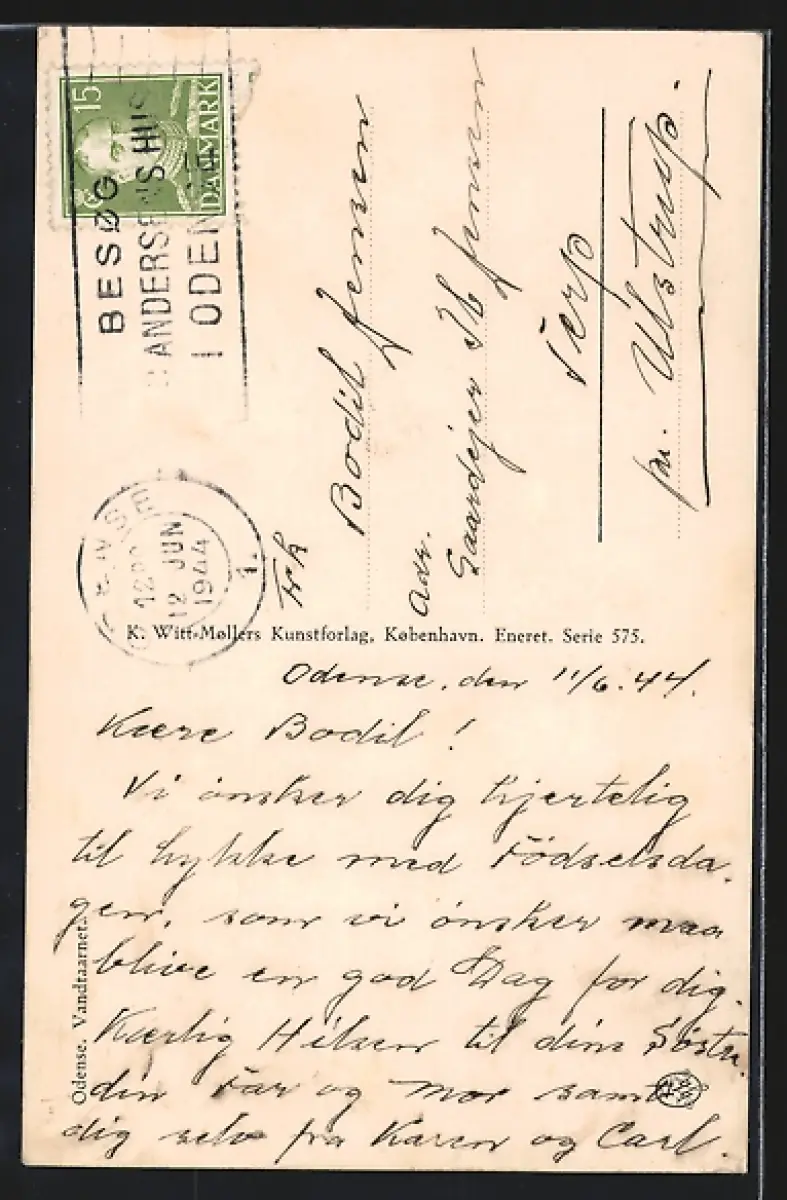 15
DANMARK
BESØG
H.C. ANDERSENS HUS
I ODENSE
ODENSE
12
12 JUN
1944
1.
Frk
Bodil Jensen
Adr. Gaardejer Ib Jensen
Terp
pr. Ulstrup.
K. Witt-Møllers Kunstforlag, København. Eneret. Serie 575.
Odense. Vandtaarnet.
Odense, den 11/6. 44.
Kære Bodil!
Vi ønsker dig hjertelig
til Lykke med Födselsda.
gen, som vi ønsker maa
blive en god Dag for dig.
Kærlig Hilsen til dine Søstre.
din Far og Mor samt
dig selv fra Karen og Carl.